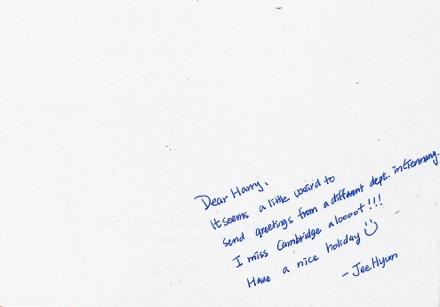 Dear Harry,
It seems a little weird to
send greetings from a different dept. in Germany.
I miss Cambridge a loooot!!!
Have a nice holiday
- JeeHyun